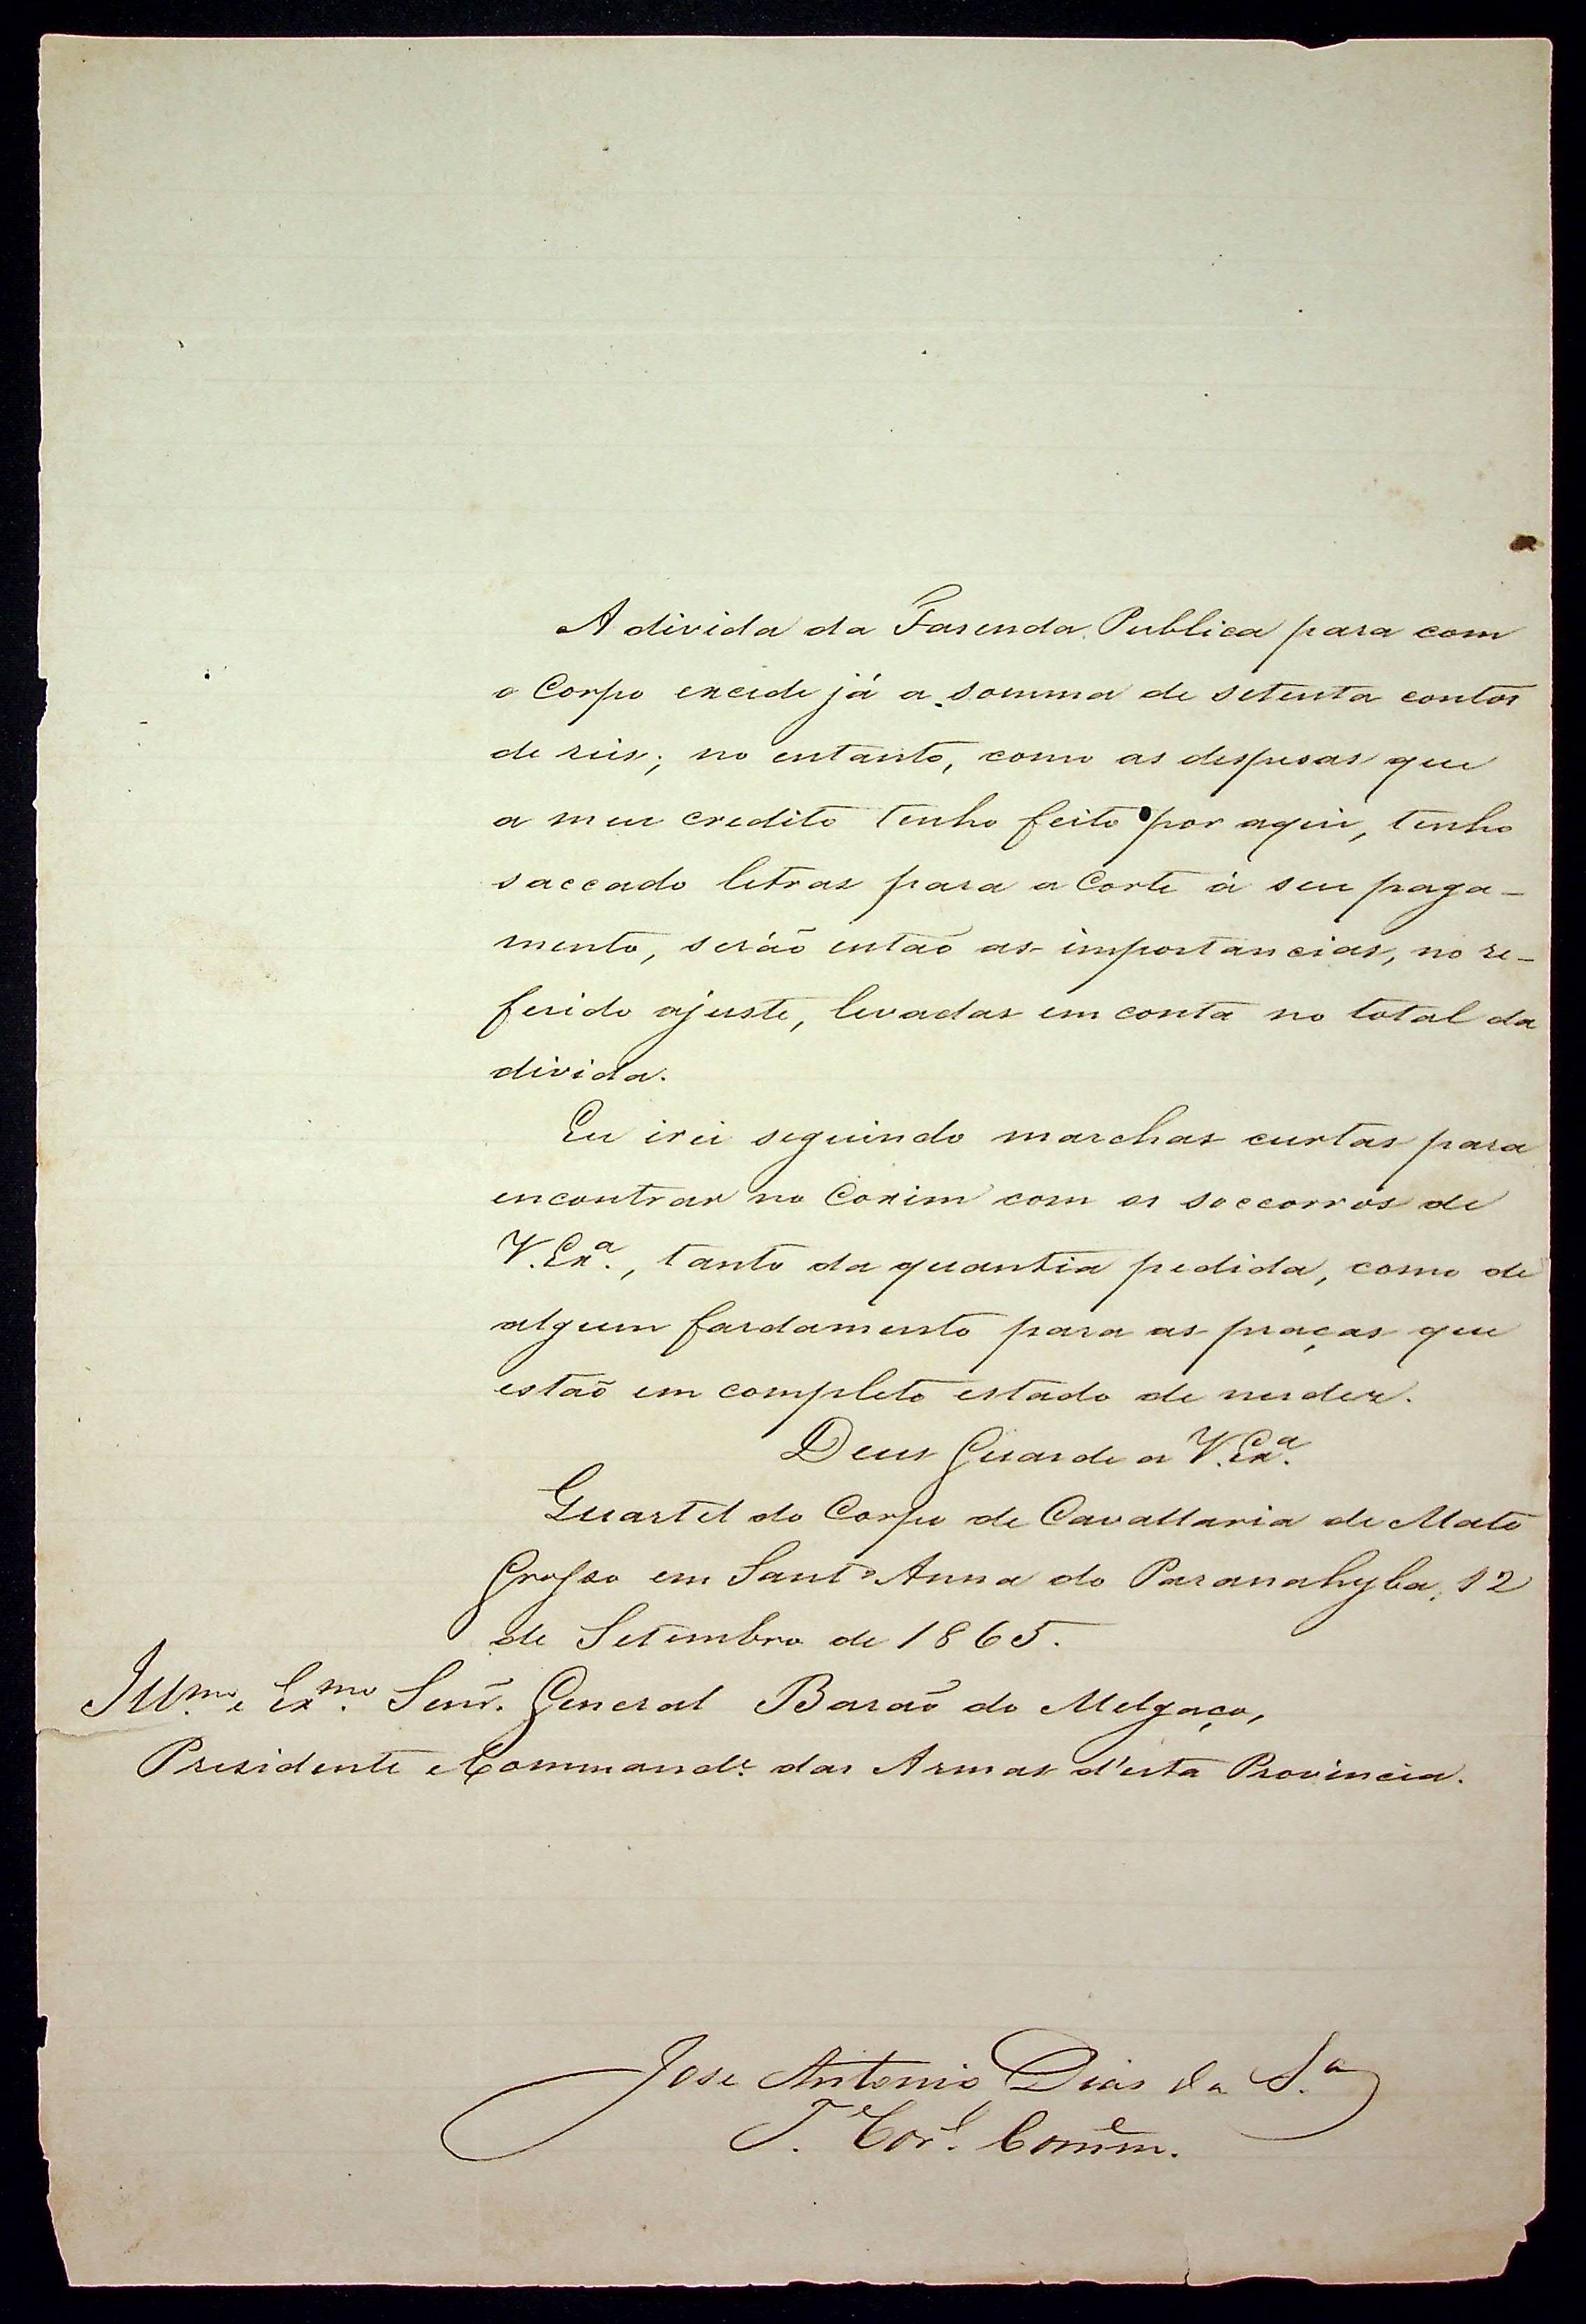 A divida da Fasenda Publica para com
o Corpo excede já a somma de setenta contos
de reis; no entanto, como as despesas que
a meu credito tenho feito por aqui, tenho
saccado letras para a Corte á seu paga-
mento, serão então as importancias, no re-
ferido ajuste, levadas em conta no total da
divida.
Eu irei seguindo marchas curtas para
encontrar no Coxim com os soccorros de
V. Exª., tanto da quantia pedida, como de
algum fardamento para as praças que
estão em completo estado de nudez.
Deus Guarde a V. Exª.
Quartel do Corpo de Cavallaria de Mato
Grosso em Sant'Anna do Paranahyba, 12
de Setembro de 1865.
Illmo. e Exmo. Senr. General Barão do Melgaço,
Presidente e Commande. das Armas d'esta Provincia.
Jose Antonio Dias da Sª
T. Corl. Comm.